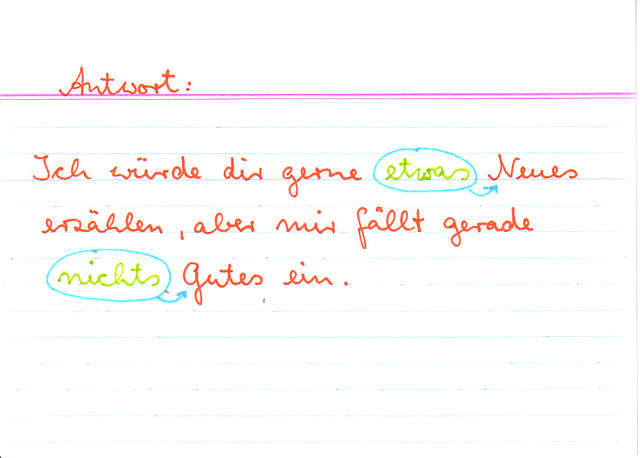 Antwort:
Ich würde dir gerne etwas Neues
erzählen, aber mir fällt gerade
nichts Gutes ein.